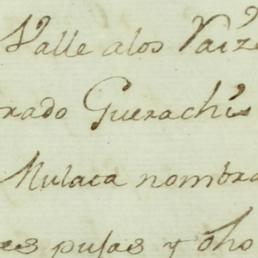 Valle alos Raíz
rado Guerachis
Mulata nombra
es pusas y oho